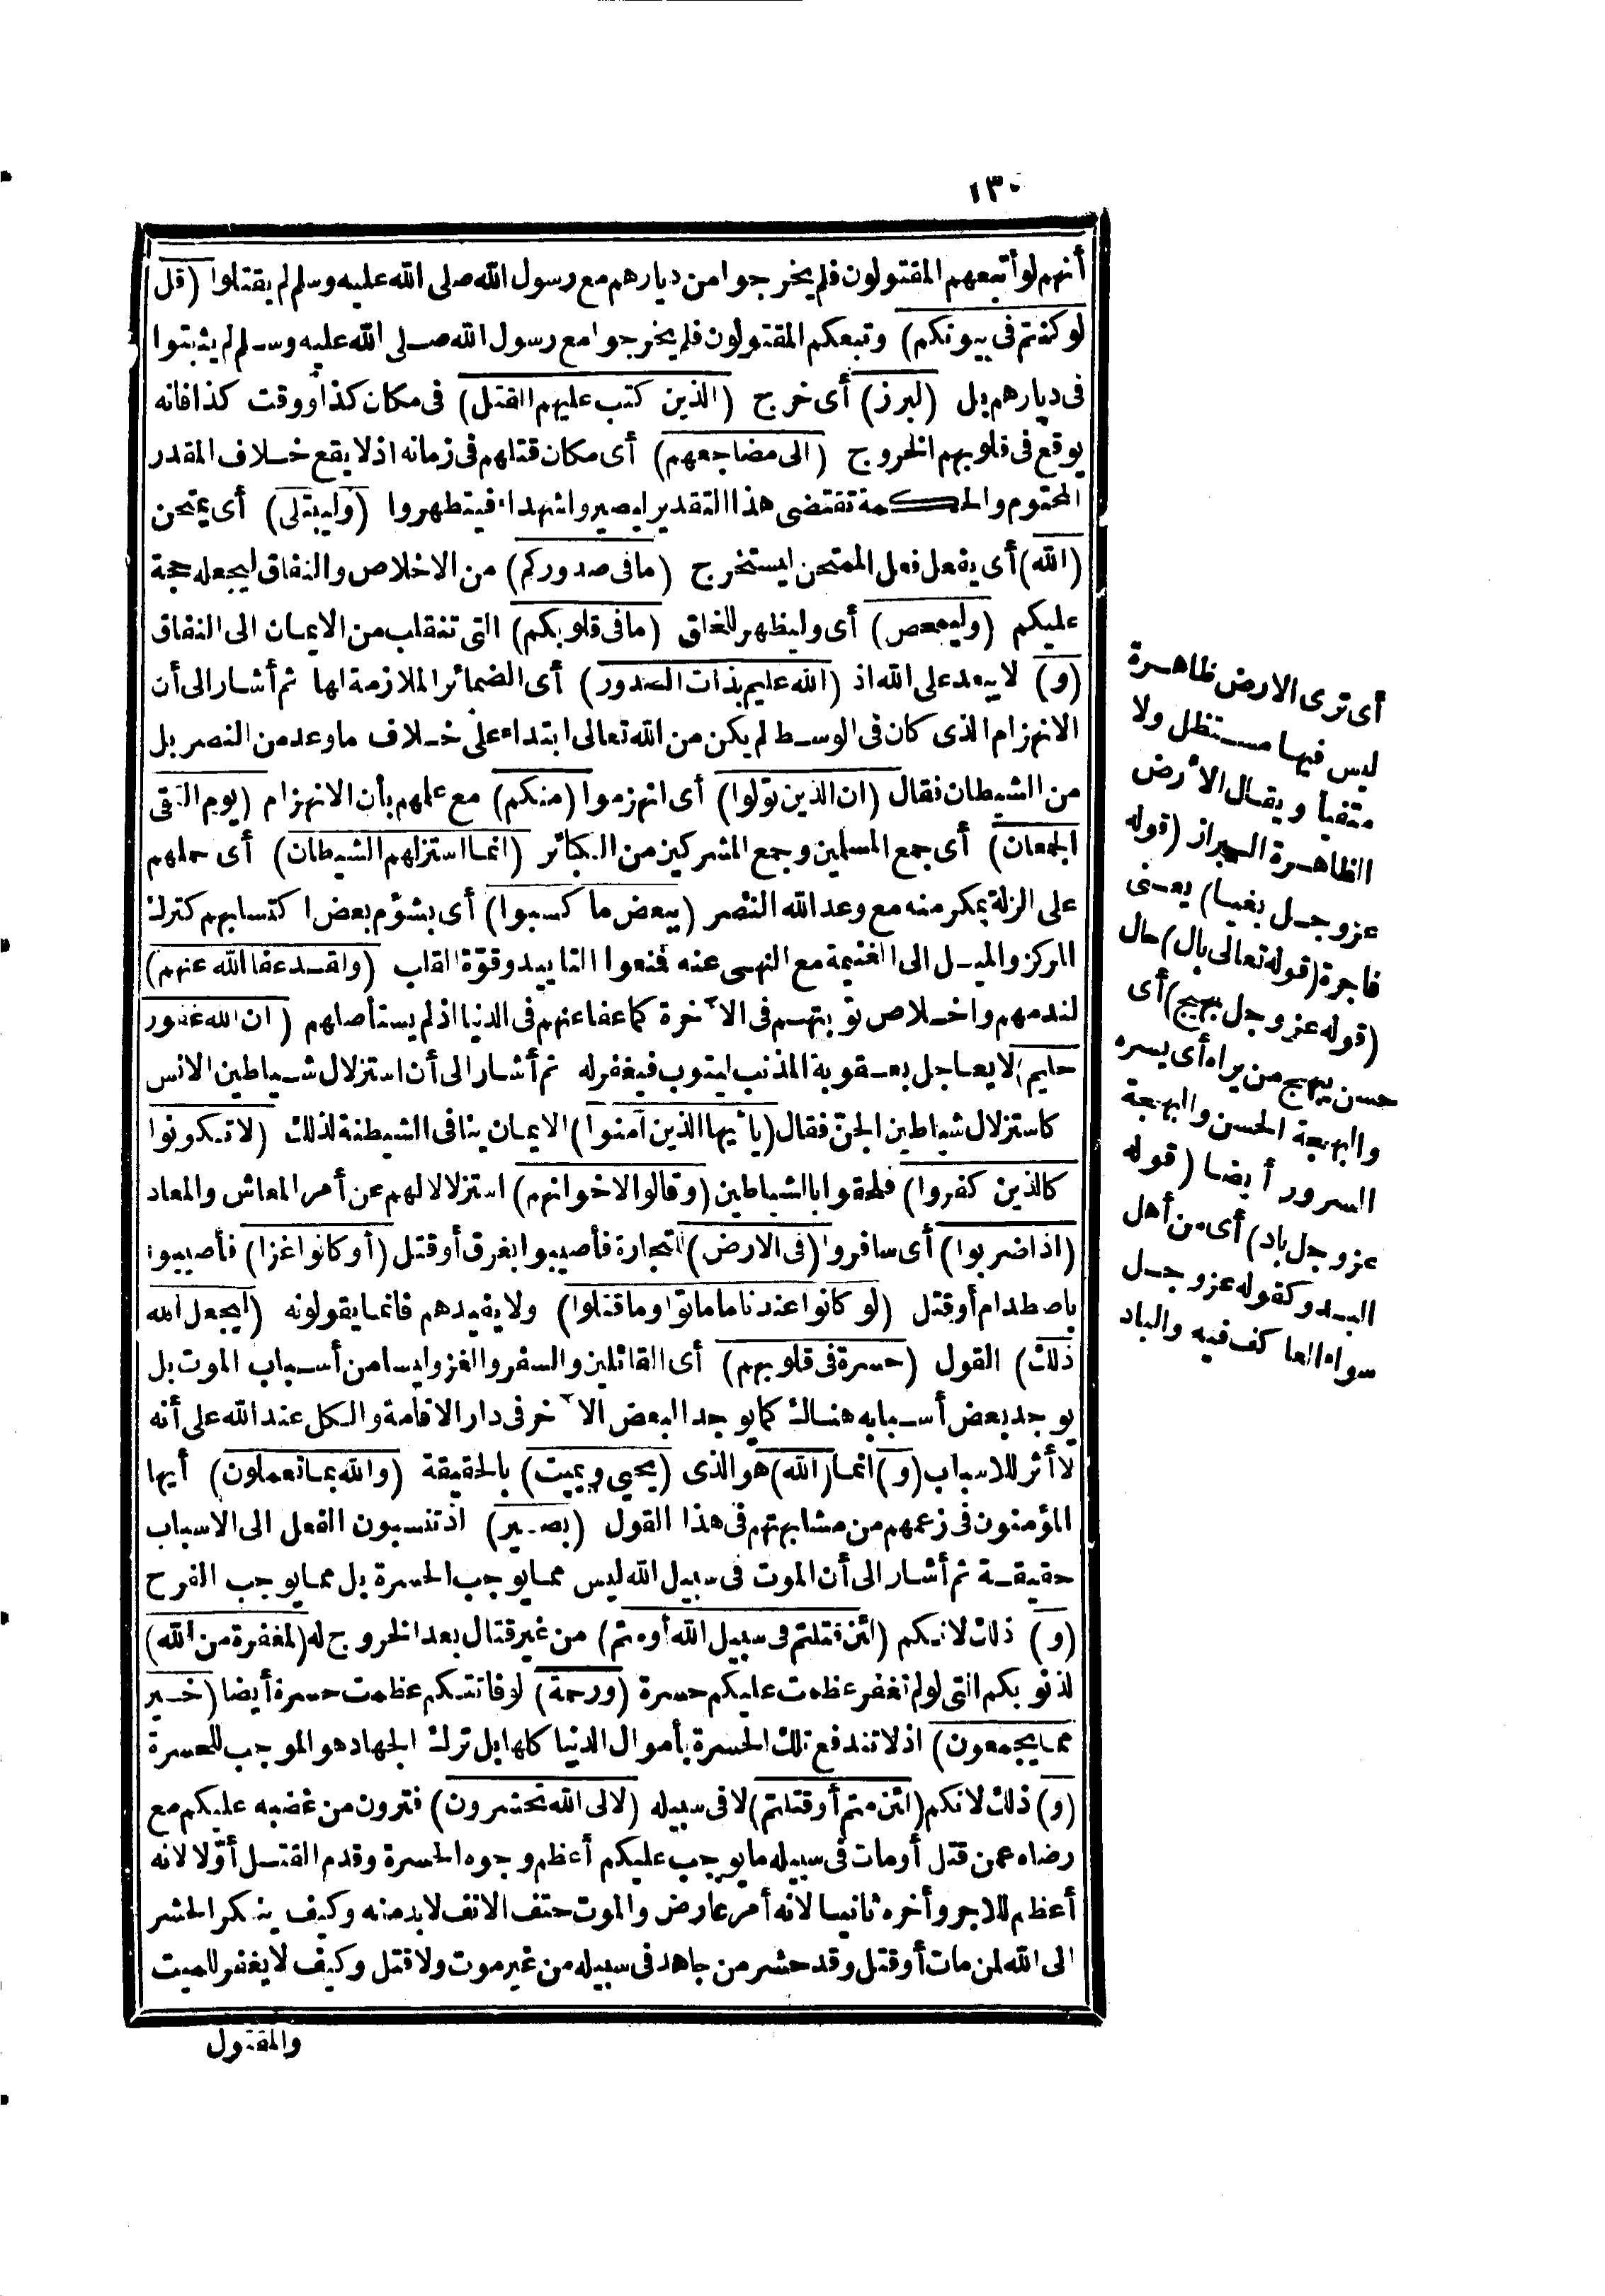 ١٣٠
أنهم لو أتبعهم المقتولون فلم يخرجوا من ديارهم مع رسول الله صلى الله عليه وسلم لم يقتلوا (قل
لو كنتم فى بيوتكم) وتبعكم المقتولون فلم يخرجوا مع رسول الله صلى الله عليه وسلم لم يثبتوا
فى ديارهم بل (لبرز) أى خرج (الذين كتب عليهم القتل) فى مكان كذا أو وقت كذا فانه
يوقع فى قلوبهم الخروج (الى مضاجعهم) أى مكان قتلهم فى زمانه اذ لا يقع خلاف المقدر
المحتوم والحكمة تقتضى هذا التقدير ليصيروا شهداء فيتطهروا (وليبتلى) أى يمتحن
(الله) أى يفعل فعل الممتحن ليستخرج (ما فى صدوركم) من الاخلاص والنفاق ليجعله حجة
عليكم (وليمحص) أى وليظهر للخلق (ما فى قلوبكم) التى تنقلب من الايمان الى النفاق
(و) لا يبعد على الله اذ (الله عليم بذات الصدور) أى الضمائر الملازمة لها ثم أشار الى أن
الانهزام الذى كان فى الوسط لم يكن من الله تعالى ابتداء على خلاف ما وعد من النصر بل
من الشيطان فقال (ان الذين تولوا) أى انهزموا (منكم) مع علمهم بأن الانهزام (يوم التقى
الجمعان) أى جمع المسلمين وجمع المشركين من الكبائر (انما استزلهم الشيطان) أى حملهم
على الزلة بمكر منه مع وعد الله النصر (ببعض ما كسبوا) أى بشؤم بعض اكتسابهم كترك
المركز والميل الى الغنيمة مع النهى عنه فمنعوا التأييد وقوّة القلب (ولقد عفا الله عنهم)
لندمهم واخلاص توبتهم فى الآخرة كما عفا عنهم فى الدنيا اذ لم يستأصلهم (ان الله غفور
حليم) لا يعاجل بعقوبة المذنب ليتوب فيغفر له ثم أشار الى أن استزلال شياطين الانس
كاستزلال شياطين الجنّ فقال (يا أيها الذين آمنوا) الايمان ينافى الشيطنة لذلك (لا تكونوا
كالذين كفروا) فلحقوا بالشياطين (وقالوا لاخوانهم) استزلالا لهم عن أمر المعاش والمعاد
(اذا ضربوا) أى سافروا (فى الارض) لتجارة فأصيبوا بغرق أو قتل (أو كانوا غزا) فأصيبوا
باصطدام أو قتل (لو كانوا عندنا ما ماتوا وما قتلوا) ولا يفيدهم فانما يقولونه (ليجعل الله
ذلك) القول (حسرة فى قلوبهم) أى القائلين والسفر والغزو ليسا من أسباب الموت بل
يوجد بعض أسبابه هناك كما يوجد البعض الآخر فى دار الاقامة والكل عند الله على أنه
لا أثر للاسباب (و) انما (الله) هو الذى (يحيى ويميت) بالحقيقة (والله بما تعملون) أيها
المؤمنون فى زعمهم من مشابهتهم فى هذا القول (بصير) اذ تنسبون الفعل الى الاسباب
حقيقة ثم أشار الى أن الموت فى سبيل الله ليس مما يوجب الحسرة بل مما يوجب الفرح
(و) ذلك لانكم (لئن قتلتم فى سبيل الله أو متم) من غير قتال بعد الخروج له (لمغفرة من الله)
لذنوبكم التى لو لم تغفر عظمت عليكم حسرة (ورحمة) لو فاتتكم عظمت حسرة أيضا (خير
مما يجمعون) اذ لا تندفع تلك الحسرة بأموال الدنيا كلها بل ترك الجهاد هو الموجب للحسرة
(و) ذلك لانكم (لئن متم أو قتلتم) لا فى سبيله (لالى الله تحشرون) فترون من غضبه عليكم مع
رضاه عمن قتل أو مات فى سبيله ما يوجب عليكم أعظم وجوه الحسرة وقدم القتل أوّلا لانه
أعظم للاجر وأخره ثانيا لانه أمر عارض والموت حتف الانف لا بد منه وكيف ينكر الحشر
الى الله لمن مات أو قتل وقد حشر من جاهد فى سبيله من غير موت ولا قتل وكيف لا يغفر للميت
والمقتول
أى ترى الارض ظاهرة
ليس فيها مستظل ولا
متفيأ ويقال الأرض
الظاهرة البراز (قوله
عز وجل بغيا) يعنى
فاجرة (قوله تعالى بال) حال
(قوله عز وجل بهيج) أى
حسن يبهج من يراه أى يسره
والبهجة الحسن والبهجة
السرور أيضا (قوله
عز وجل باد) أى من أهل
البدو كقوله عز وجل
سواء العاكف فيه والباد